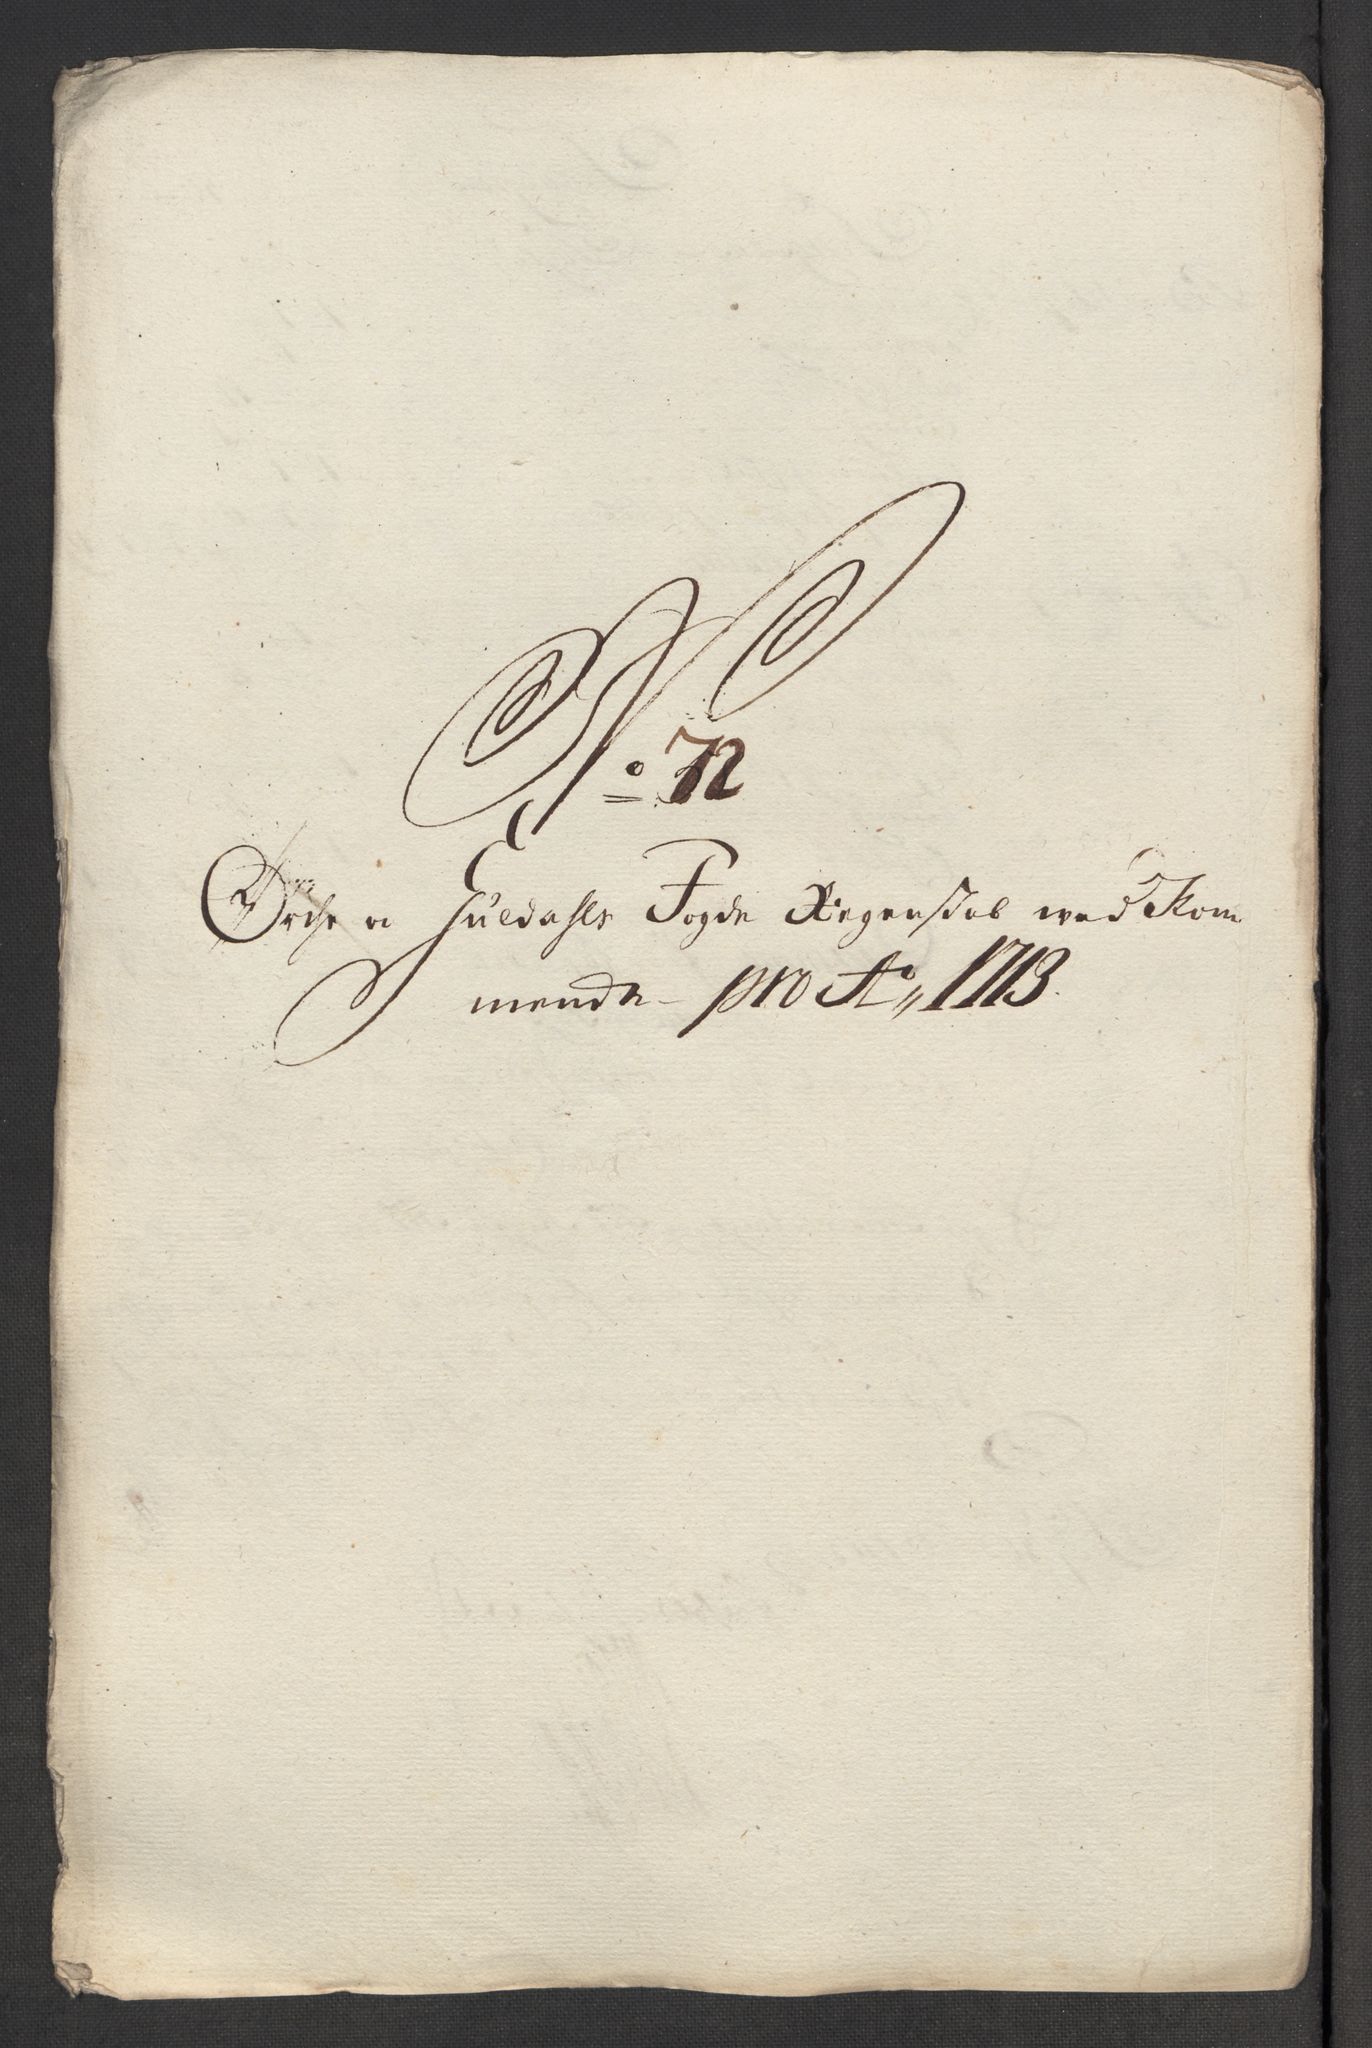 No 72
Orche oc Guldahls Fogde Regenskab wed Kom
mende pro Ao 1713.